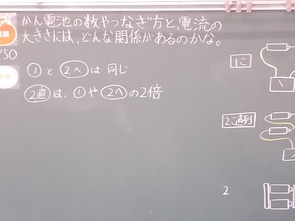 かん電池の数やつなぎ方と、電流の
大きさには、どんな関係があるのかな。
P50
①と2へは同じ
2直は、①や2への2倍
1こ
2こ直列
2